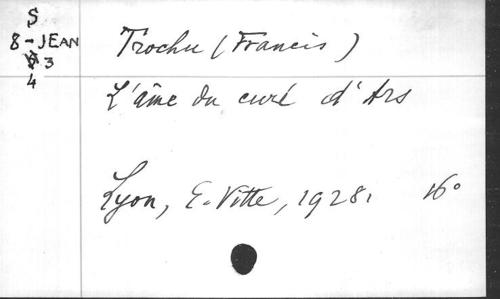 S
8 - JEAN
3
4
Trochu (Francis)
L'âme du curé d'Ars
Lyon, E. Vitte, 1928. 16°